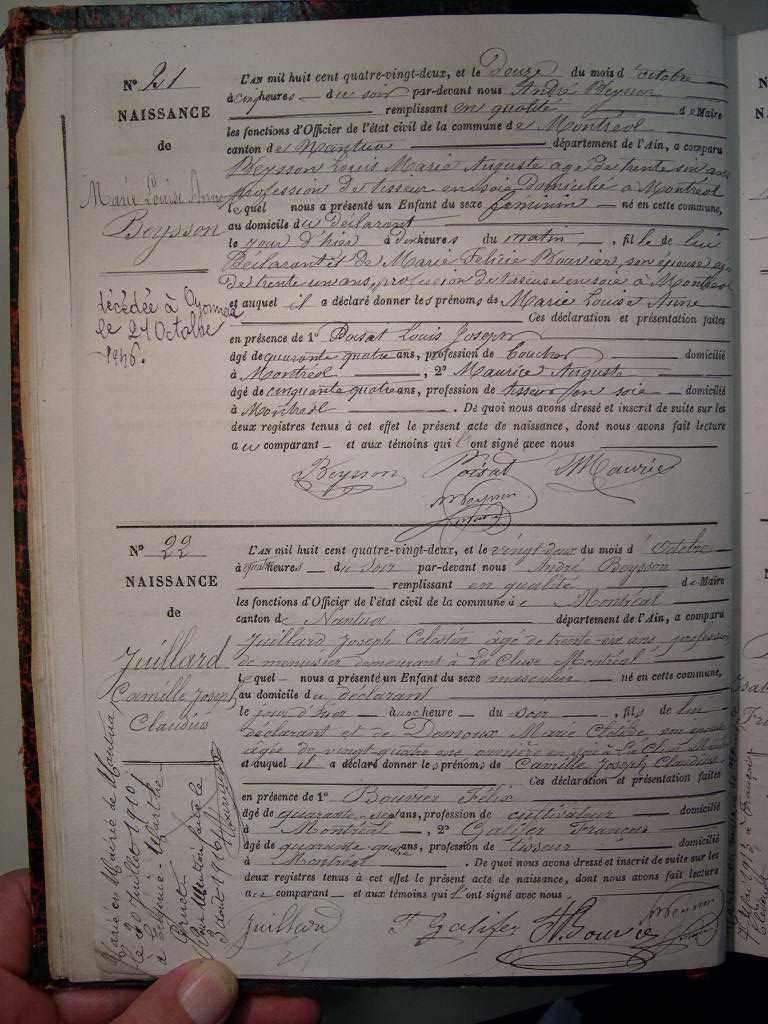 N° 21
NAISSANCE
de
Marie Louise Anne
Beysson
décédée à Oyonnax
le 21 Octobre
1946.
L'AN mil huit cent quatre-vingt-deux, et le Douze du mois d'octobre
à cinq heures du soir par-devant nous André Beysson
remplissant en qualité de Maire
les fonctions d'Officier de l'état civil de la commune de Montréal
canton de Nantua département de l'Ain, a comparu
Beysson Louis Marie Auguste âgé de trente six ans
profession de tisseur en soie domicilié à Montréal
lequel nous a présenté un Enfant du sexe féminin né en cette commune,
au domicile du déclarant
le jour d'hier à heures du matin, fille de lui
Déclarant et de Marie Félicie Bouvier, son épouse âgée
de trente un ans, profession de tisseuse en soie à Montréal
et auquel il a déclaré donner les prénoms de Marie Louise Anne
Ces déclaration et présentation faites
en présence de 1° Poisat Louis Joseph
âgé de quarante quatre ans, profession de boucher domicilié
à Montréal, 2° Maurice Auguste
âgé de cinquante quatre ans, profession de tisseur en soie domicilié
à Montréal. De quoi nous avons dressé et inscrit de suite sur les
deux registres tenus à cet effet le présent acte de naissance, dont nous avons fait lecture
au comparant et aux témoins qui l'ont signé avec nous
Beysson Poisat Maurice
Beysson
N° 22
NAISSANCE
de
Juillard
Camille Joseph
Claudius
Marié en Mairie de Nantua
le 30 Juillet 1910
à Eugénie Marthe
Pour Mention faite le
3 Août 1910
L'AN mil huit cent quatre-vingt-deux, et le vingt-deux du mois d'Octobre
à quatre heures du soir par-devant nous André Beysson
remplissant en qualité de Maire
les fonctions d'Officier de l'état civil de la commune de Montréal
canton de Nantua département de l'Ain, a comparu
Juillard Joseph Célestin âgé de trente-six ans, profession
de menuisier demeurant à La Cluse Montréal
lequel nous a présenté un Enfant du sexe masculin né en cette commune,
au domicile du déclarant
le jour d'hier à une heure du soir, fils de lui
déclarant et de Marie Clotilde, son épouse
âgée de vingt-quatre ans ouvrière en soie à La Cluse
et auquel il a déclaré donner les prénoms de Camille Joseph Claudius
Ces déclaration et présentation faites
en présence de 1° Bouvier Félix
âgé de quarante ans, profession de cultivateur domicilié
à Montréal, 2° Galifer François
âgé de quarante quatre ans, profession de tisseur domicilié
à Montréal. De quoi nous avons dressé et inscrit de suite sur les
deux registres tenus à cet effet le présent acte de naissance, dont nous avons fait lecture
au comparant et aux témoins qui l'ont signé avec nous.
Juillard F Galifer F. Bouvier
Beysson